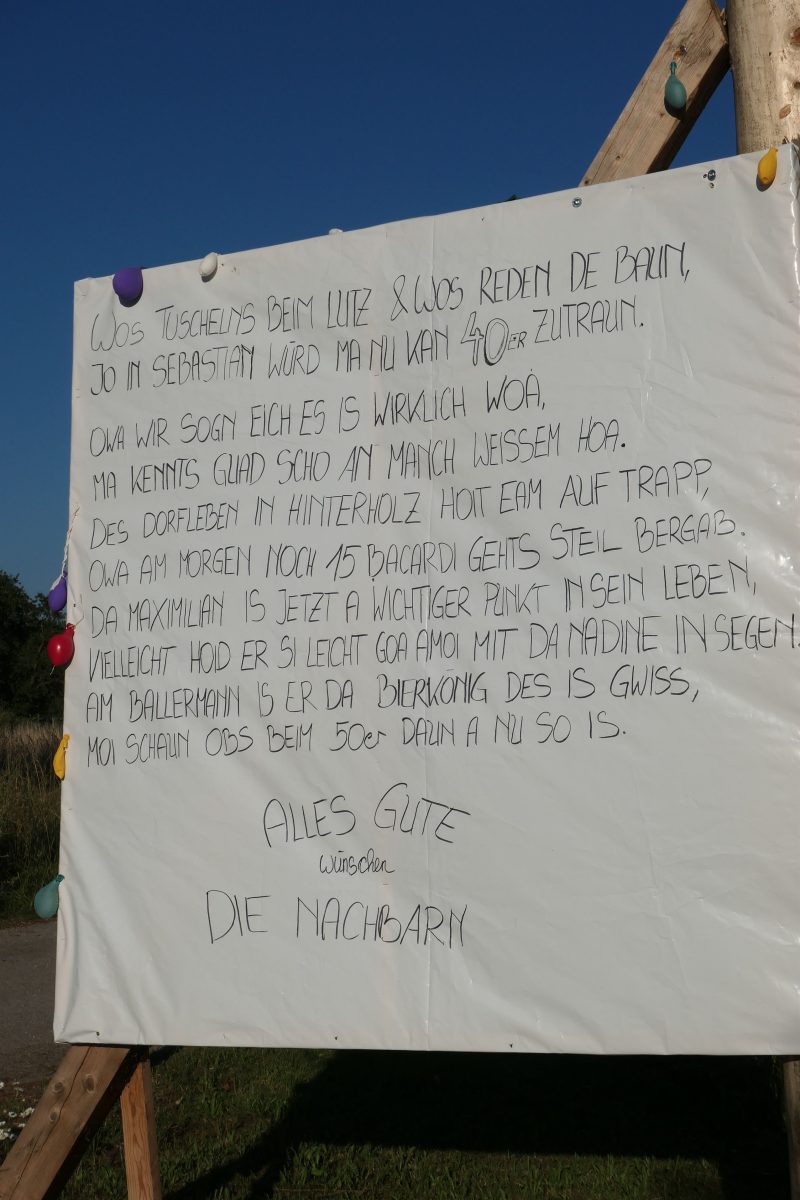 WOS TUSCHELNS BEIM LUTZ & WOS REDEN DE BAUN,
JO IN SEBASTIAN WÜRD MA NU KAN 40ER ZUTRAUN.
OWA WIR SOGN EICH ES IS WIRKLICH WOA,
MA KENNTS GUAD SCHO AN MANCH WEISSEM HOA.
DES DORFLEBEN IN HINTERHOLZ HOIT EAM AUF TRAPP,
OWA AM MORGEN NOCH 15 BACARDI GEHTS STEIL BERGAB.
DA MAXIMILIAN IS JETZT A WICHTIGER PUNKT IN SEIN LEBEN,
VIELLEICHT HOID ER SI LEICHT GOA AMOI MIT DA NADINE IN SEGEN.
AM BALLERMANN IS ER DA BIERKÖNIG DES IS GWISS,
MOI SCHAUN OBS BEIM 50er DAUN A NU SO IS.
ALLES GUTE
wünschen
DIE NACHBARN